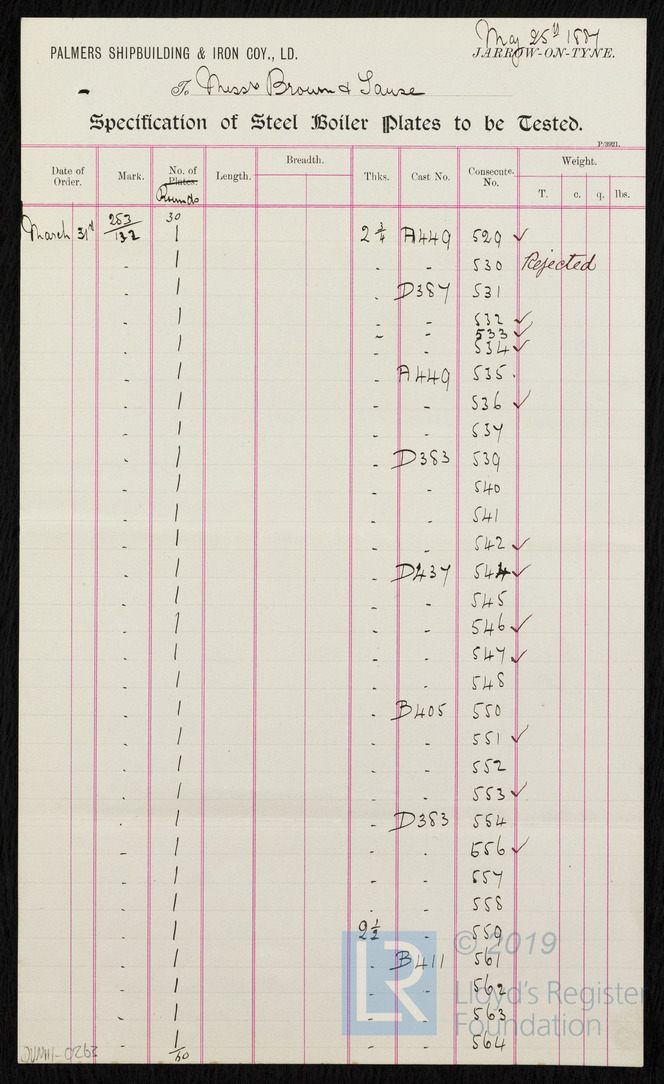 May 25th 1887
PALMERS SHIPBUILDING & IRON COY., LD.
JARROW-ON-TYNE.
To Messrs Brown &
Specification of Steel Boiler Plates to be Tested.
P/3921.
Date of Order. Mark. No. of Plates. Rounds Length. Breadth. Thks. Cast No. Consecute. No. Weight.
T. c. q. lbs.
30
March 31st 253/132 1 2 3/4 A449 529 ✓
- 1 - - 530 Rejected
- 1 - D387 531
- 1 - - 532 ✓
- - 533 ✓
- 1 - - 534 ✓
- 1 - A449 535 .
- 1 - - 536 ✓
- 1 - - 537
- 1 - D383 539
- 1 - - 540
- 1 - - 541
- 1 - - 542 ✓
- 1 - D437 544 ✓
- 1 - - 545
- 1 - - 546 ✓
- 1 - - 547 ✓
- 1 - - 548
- 1 - B405 550
- 1 - - 551 ✓
- 1 - - 552
- 1 - - 553 ✓
- 1 - D383 554
- 1 - - 556 ✓
- 1 - - 557
- 1 - - 558
- 1 2 1/2 - 559
- 1 - B411 561
- 1 - - 562
- 1 - - 563
- 1 - - 564
60
DUN111-0263
LR
© 2019
Lloyd's Register
Foundation